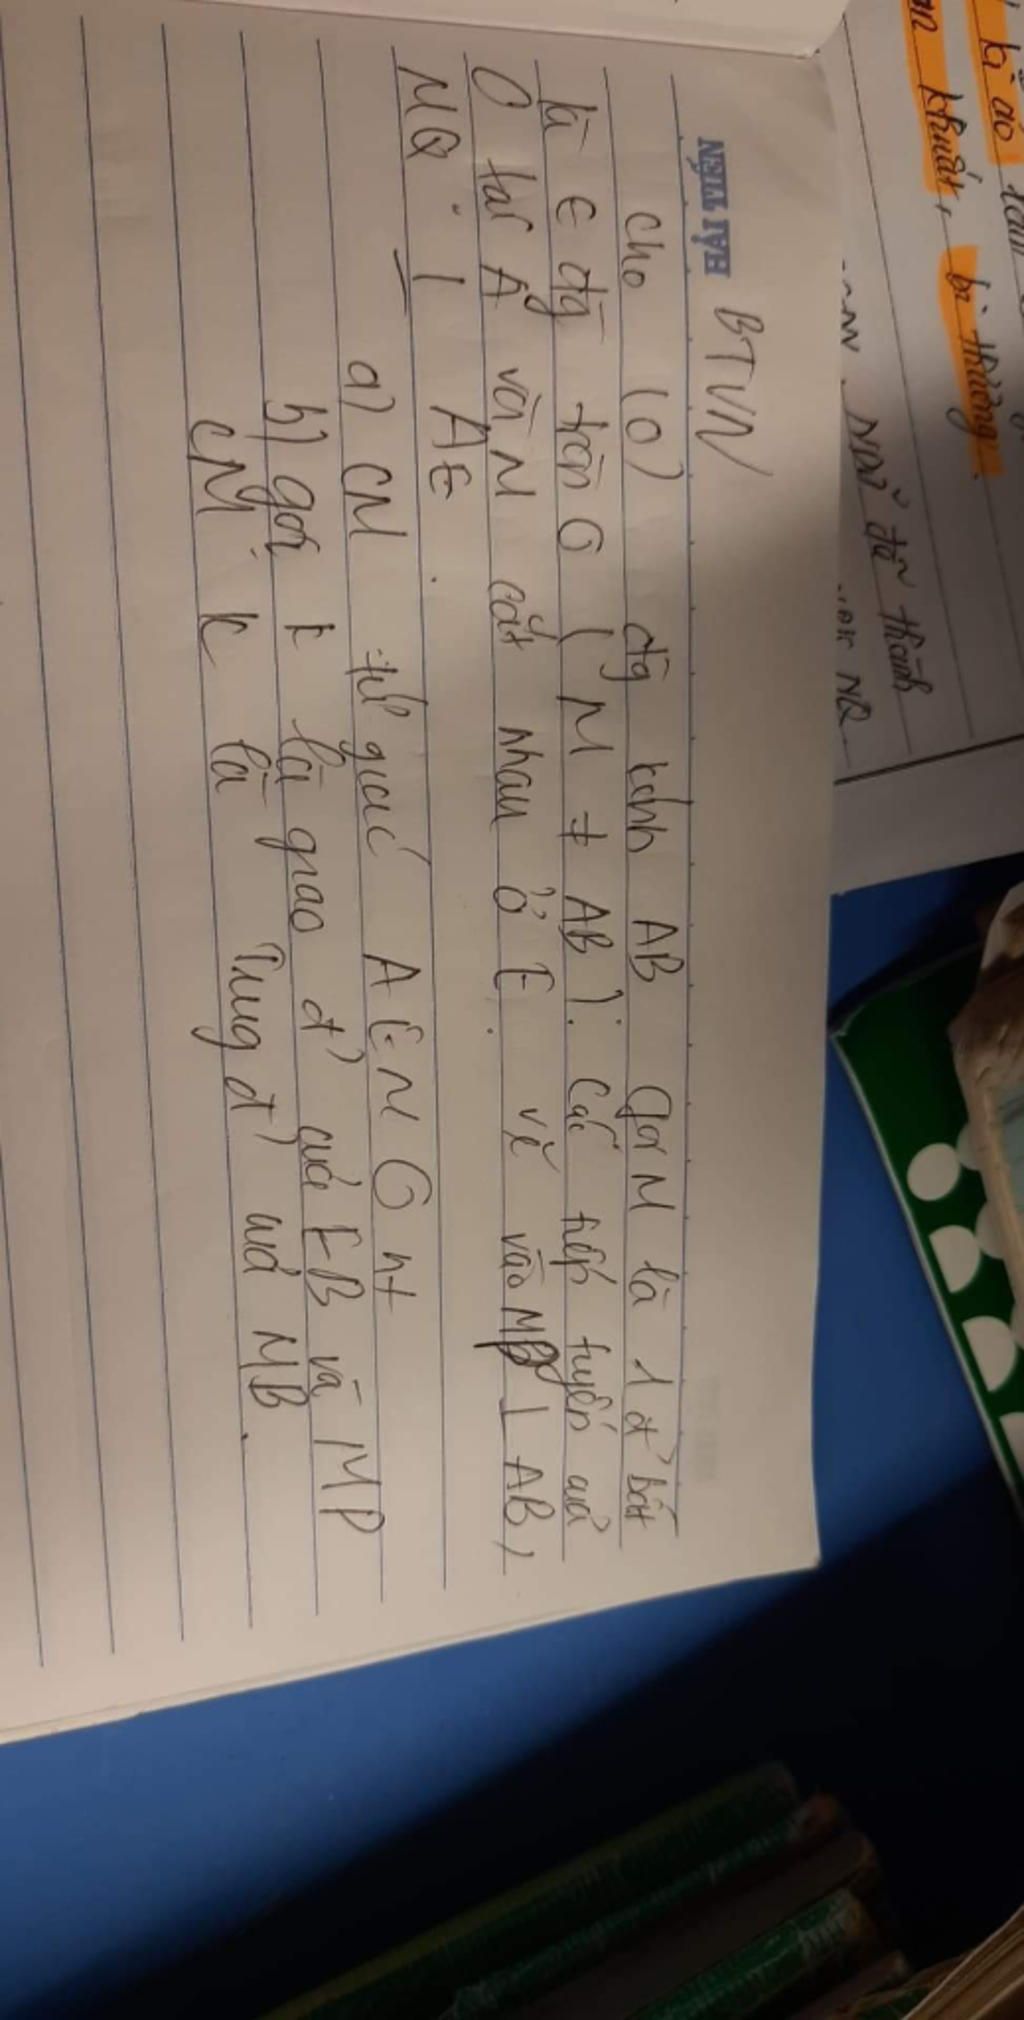 kì ảo
khuất, bi thương.
Nuí đã thành
MQ
HẢI TIẾN
BTVN
Cho (O) đg kính AB Gọi M là 1 đ' bất
kì E đg tròn O (M ≠ AB). Các tiếp tuyến của
O tại A và M cắt nhau ở E. vẽ vào MP ⊥ AB,
MQ ⊥ AE.
a) CM tứ giác AEMO nt
b) gọi k là giao đ' của EB và MP
CM k là Tung đ' của MB.